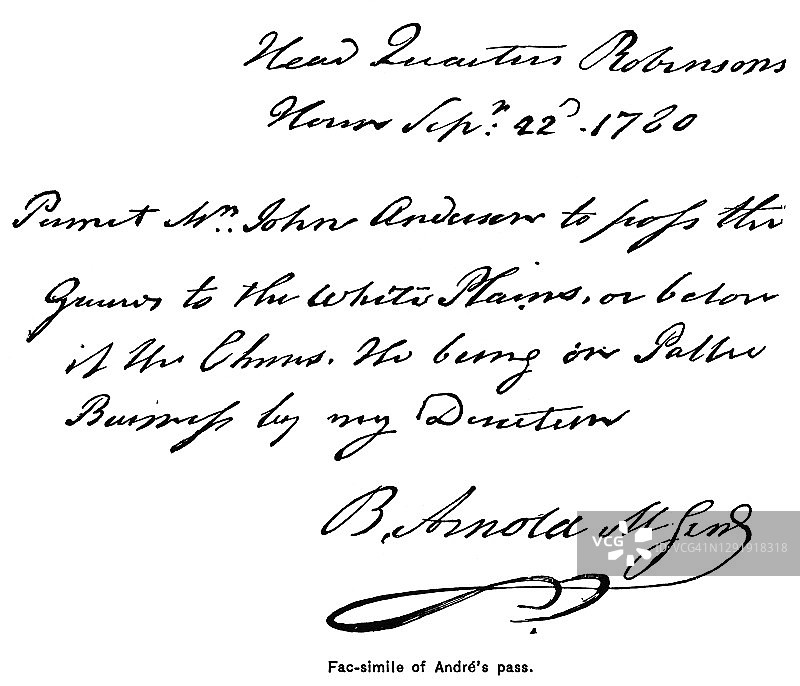 Head Quarters Robinsons
House Sepr. 22d. 1780
Permit Mr. John Anderson to pass the
Guards to the White Plains, or below
if He Chuses. He being on Public
Business by my Direction
B. Arnold M Genl
VCG
VCG
ID:VCG41N1291918318
Fac-simile of André's pass.